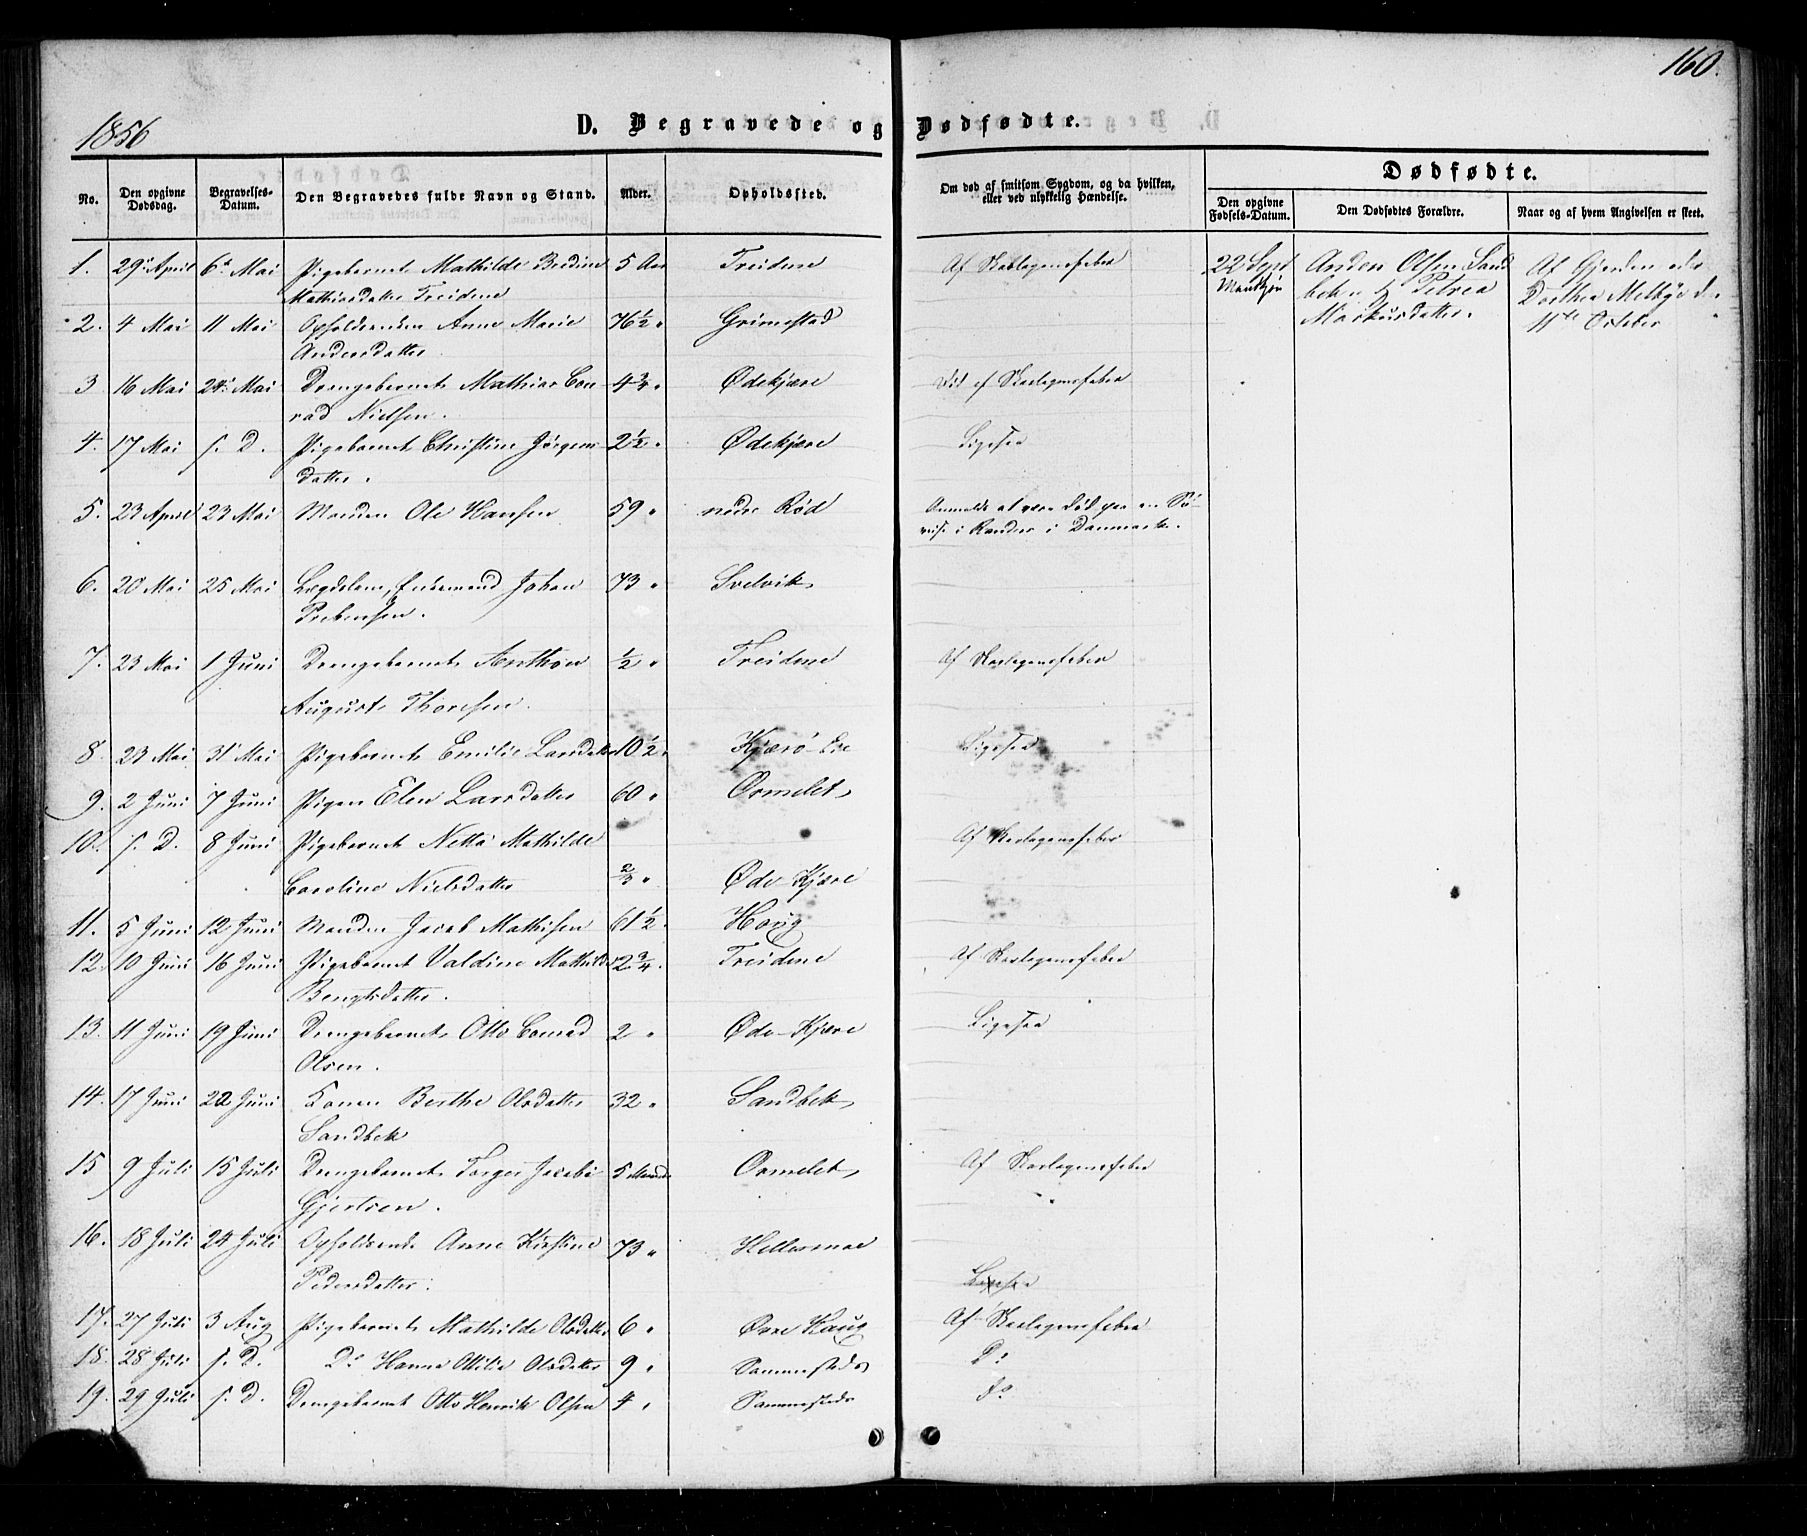 160.
1856
D. Begravede og Dødfødte.
No.
Den opgivne Dødsdag.
Begravelses-Datum.
Den Begravedes fulde Navn og Stand.
Alder.
Opholdssted.
Om død af smitsom Sygdom, og da hvilken,
eller ved ulykkelig Hændelse.
Dødfødte.
Den opgivne Fødsels-Datum.
Den Dødfødtes Forældre.
Naar og af hvem Angivelsen er skeet.
1. 29 April 6te Mai Pigebarnet Mathilde Berdine 5 Aar Treidene Af Skarlagensfeber
Mathiasdatter Treidene
22 Sept Anders Olsen Sand
bek og Petrea
Markusdatter.
Af Gjorden
Dorthea Melbye d.
11te October
2. 4 Mai 11 Mai Anne Marie 76 1/2 " Grimestad
Andersdatter
3 16 Mai 24 Mai Drengebarnet Mathias Con 4 3/4 " Ødekjære Død af Skarlagensfeber
rad Nielsen.
4. 17 Mai s. D. Pigebarnet Christine Jørgens 2 1/2 " Ødekjære Ligesaa
datter.
5. 23 April 23 Mai Manden Ole Hansen 59 " nedre Rød Anmeldt at være død paa en Sø-
reise i Randers i Danmark.
6. 20 Mai 25 Mai Lægdslem, Enkemand Johan 73 " Svelvik
Prebensen.
7. 23 Mai 1 Juni Drengebarnet Anthon 1/2 " Treidene Af Skarlagensfeber
August Thoresen.
8. 23 Mai 31 Mai Pigebarnet Emilie Larsdatter 10 1/2 " Kjærø Ligesaa
9. 2 Juni 7 Juni Pigen Elen Larsdatter 60 " Ormelet
10. s. D. 8 Juni Pigebarnet Netta Mathilde Af Skarlagensfeber
Caroline Nielsdatter 2/3 " Øde-Kjære
11. 5 Juni 12 Juni Manden Jacob Mathisen 61 1/2 " Houg
12. 10 Juni 16 Juni Pigebarnet Valdine Mathilde 2 3/4 " Treidene Af Skarlagensfeber
Bengtsdatter.
13. 11 Juni 19 Juni Drengebarnet Otto Conrad 2 " Øde-Kjære Ligesaa
Olsen.
14. 17 Juni 22 Juni Konen Berthe Olsdatter 32 " Sandbek
Sandbek
15 9 Juli 15 Juli Drengebarnet Torger Jacobi 5 Maaneder Ormelet Af Skarlagensfeber
Gjertsen.
16. 18 Juli 24 Juli Anne Kirstine 73 " Hellesmoe
Pedersdatter.
Ligesaa
17. 27 Juli 3 Aug Pigebarnet Mathilde Olsdatter 6 " Øvre Haug Af Skarlagensfeber
18. 28 Juli s. D. Do Hanna Ottilie Olsdatter 9 " Sammesteds Do
19. 29 Juli s. D. Drengebarnet Otto Henrik Olsen 4 " Sammesteds do